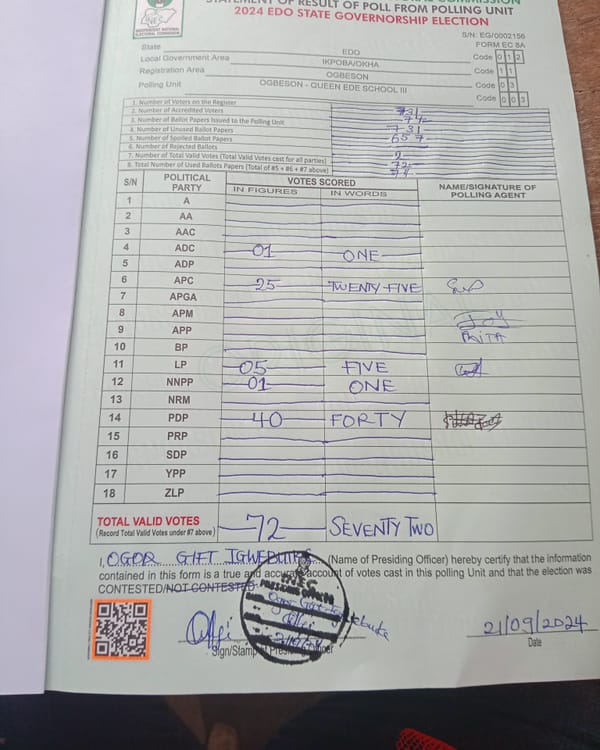 STATEMENT OF RESULT OF POLL FROM POLLING UNIT
2024 EDO STATE GOVERNORSHIP ELECTION
INDEPENDENT NATIONAL ELECTORAL COMMISSION
S/N: EG/0002156
FORM EC 8A
State EDO Code 0 1 2
Local Government Area IKPOBA/OKHA Code 1 1
Registration Area OGBESON Code 0 3
Polling Unit OGBESON - QUEEN EDE SCHOOL III Code 0 0 3
1. Number of Voters on the Register 731
2. Number of Accredited Voters 74
3. Number of Ballot Papers Issued to the Polling Unit 731
4. Number of Unused Ballot Papers 657
5. Number of Spoiled Ballot Papers
6. Number of Rejected Ballots 2
7. Number of Total Valid Votes (Total Valid Votes cast for all parties) 72
8. Total Number of Used Ballots Papers (Total of #5 + #6 + #7 above) 74
S/N POLITICAL PARTY VOTES SCORED NAME/SIGNATURE OF POLLING AGENT
IN FIGURES IN WORDS
1 A
2 AA
3 AAC
4 ADC 01 ONE
5 ADP
6 APC 25 TWENTY FIVE
7 APGA
8 APM JOY
9 APP RITA
10 BP
11 LP 05 FIVE
12 NNPP 01 ONE
13 NRM
14 PDP 40 FORTY
15 PRP
16 SDP
17 YPP
18 ZLP
TOTAL VALID VOTES 72 SEVENTY TWO
(Record Total Valid Votes under #7 above)
I, OGOR GIFT IGWEBUIKE (Name of Presiding Officer) hereby certify that the information
contained in this form is a true and accurate account of votes cast in this polling Unit and that the election was
CONTESTED/NOT CONTESTED
INEC
Ogor Gift Igwebuike
21/09/2024
Sign/Stamp of Presiding Officer Date